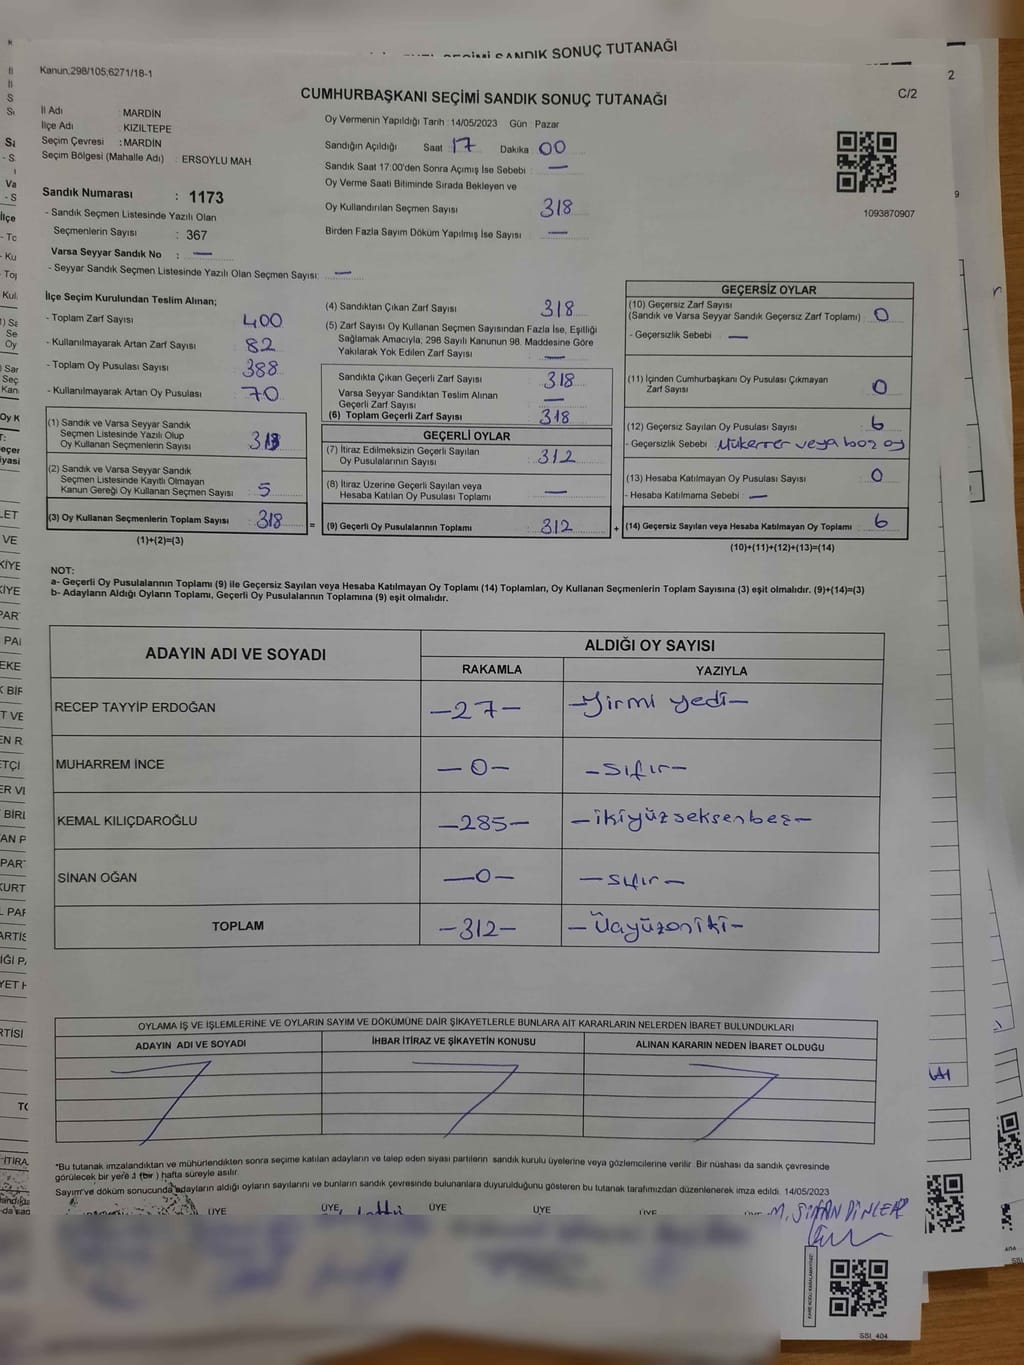 SEÇİMİ SANDIK SONUÇ TUTANAĞI
2
Kanun,298/105,6271/18-1
CUMHURBAŞKANI SEÇİMİ SANDIK SONUÇ TUTANAĞI
C/2
İl Adı : MARDİN
İlçe Adı : KIZILTEPE
Seçim Çevresi : MARDİN
Seçim Bölgesi (Mahalle Adı) : ERSOYLU MAH
Sandık Numarası : 1173
- Sandık Seçmen Listesinde Yazılı Olan
Seçmenlerin Sayısı : 367
Varsa Seyyar Sandık No : —
- Seyyar Sandık Seçmen Listesinde Yazılı Olan Seçmen Sayısı: —
Oy Vermenin Yapıldığı Tarih : 14/05/2023 Gün : Pazar
Sandığın Açıldığı Saat 17 Dakika 00
Sandık Saat 17:00'den Sonra Açımış İse Sebebi : —
Oy Verme Saati Bitiminde Sırada Bekleyen ve
Oy Kullandırılan Seçmen Sayısı 318
Birden Fazla Sayım Döküm Yapılmış İse Sayısı —
1093870907
İlçe Seçim Kurulundan Teslim Alınan;
- Toplam Zarf Sayısı 400
- Kullanılmayarak Artan Zarf Sayısı : 82
- Toplam Oy Pusulası Sayısı : 388
- Kullanılmayarak Artan Oy Pusulası : 70
(1) Sandık ve Varsa Seyyar Sandık
Seçmen Listesinde Yazılı Olup
Oy Kullanan Seçmenlerin Sayısı
(2) Sandık ve Varsa Seyyar Sandık
Seçmen Listesinde Kayıtlı Olmayan
Kanun Gereği Oy Kullanan Seçmen Sayısı : 5
(3) Oy Kullanan Seçmenlerin Toplam Sayısı 318 =
(1)+(2)=(3)
(4) Sandıktan Çıkan Zarf Sayısı 318
(5) Zarf Sayısı Oy Kullanan Seçmen Sayısından Fazla İse, Eşitliği
Sağlamak Amacıyla, 298 Sayılı Kanunun 98. Maddesine Göre
Yakılarak Yok Edilen Zarf Sayısı —
Sandıkta Çıkan Geçerli Zarf Sayısı 318
Varsa Seyyar Sandıktan Teslim Alınan
Geçerli Zarf Sayısı —
(6) Toplam Geçerli Zarf Sayısı 318
GEÇERLİ OYLAR
(7) İtiraz Edilmeksizin Geçerli Sayılan
Oy Pusulalarının Sayısı : 312
(8) İtiraz Üzerine Geçerli Sayılan veya
Hesaba Katılan Oy Pusulası Toplamı : —
(9) Geçerli Oy Pusulalarının Toplamı : 312 +
GEÇERSİZ OYLAR
(10) Geçersiz Zarf Sayısı
(Sandık ve Varsa Seyyar Sandık Geçersiz Zarf Toplamı) : 0
- Geçersizlik Sebebi : —
(11) İçinden Cumhurbaşkanı Oy Pusulası Çıkmayan
Zarf Sayısı : 0
(12) Geçersiz Sayılan Oy Pusulası Sayısı : 6
- Geçersizlik Sebebi Mükerrer veya boş oy
(13) Hesaba Katılmayan Oy Pusulası Sayısı : 0
- Hesaba Katılmama Sebebi : —
(14) Geçersiz Sayılan veya Hesaba Katılmayan Oy Toplamı : 6
(10)+(11)+(12)+(13)=(14)
NOT:
a- Geçerli Oy Pusulalarının Toplamı (9) ile Geçersiz Sayılan veya Hesaba Katılmayan Oy Toplamı (14) Toplamları, Oy Kullanan Seçmenlerin Toplam Sayısına (3) eşit olmalıdır. (9)+(14)=(3)
b- Adayların Aldığı Oyların Toplamı, Geçerli Oy Pusulalarının Toplamına (9) eşit olmalıdır.
ADAYIN ADI VE SOYADI ALDIĞI OY SAYISI
RAKAMLA YAZIYLA
RECEP TAYYİP ERDOĞAN —27— —yirmi yedi—
MUHARREM İNCE —0— —sıfır—
KEMAL KILIÇDAROĞLU —285— —ikiyüzseksenbeş—
SİNAN OĞAN —0— —sıfır—
TOPLAM —312— —Üçyüzoniki—
OYLAMA İŞ VE İŞLEMLERİNE VE OYLARIN SAYIM VE DÖKÜMÜNE DAİR ŞİKAYETLERLE BUNLARA AİT KARARLARIN NELERDEN İBARET BULUNDUKLARI
ADAYIN ADI VE SOYADI İHBAR İTİRAZ VE ŞİKAYETİN KONUSU ALINAN KARARIN NEDEN İBARET OLDUĞU
*Bu tutanak imzalandıktan ve mühürlendikten sonra seçime katılan adayların ve talep eden siyasi partilerin sandık kurulu üyelerine veya gözlemcilerine verilir. Bir nüshası da sandık çevresinde
görülecek bir yere 1 (bir) hafta süreyle asılır.
Sayım ve döküm sonucunda adayların aldığı oyların sayılarını ve bunların sandık çevresinde bulunanlara duyurulduğunu gösteren bu tutanak tarafımızdan düzenlenerek imza edildi. 14/05/2023
ÜYE ÜYE ÜYE ÜYE ÜYE
SSI_404